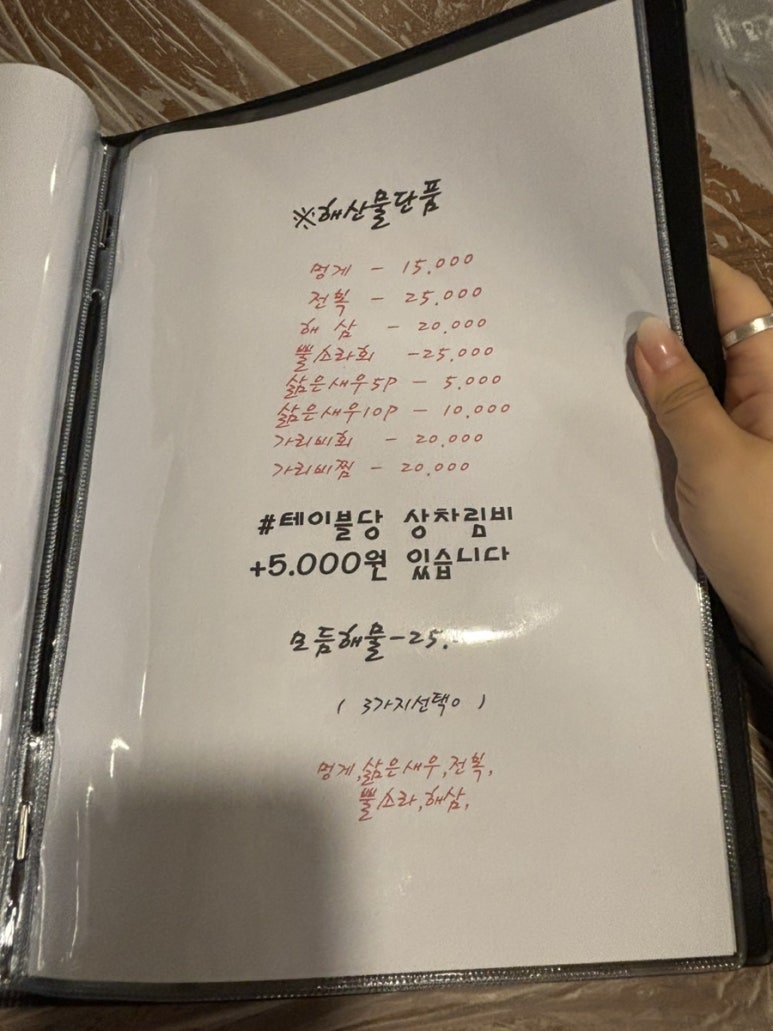 ※해산물단품
멍게 - 15.000
전복 - 25.000
해삼 - 20.000
뿔소라회 -25.000
삶은새우5P - 5.000
삶은새우10P - 10.000
가리비회 - 20.000
가리비찜 - 20.000
#테이블당 상차림비
+5.000원 있습니다
모듬해물-25.
( 3가지선택o )
멍게,삶은새우,전복,
뿔소라,해삼,